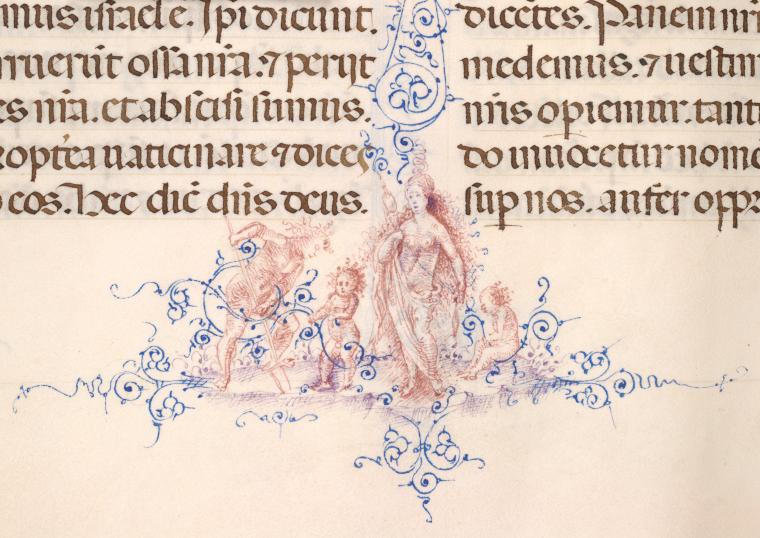 mus israele. Ip̄i dicunt.
ruerūt ossa nr̄a. ⁊ perijt
es nr̄a. et abscisi sumus.
ropt̄ea uaticinare ⁊ dices
eos. Hec dic̄ dn̄s deus.
dicētes. Panem nr̄
medemus. ⁊ uestim
nr̄is opiemur. tant
do inuocetur nom
sup nos. aufer opp